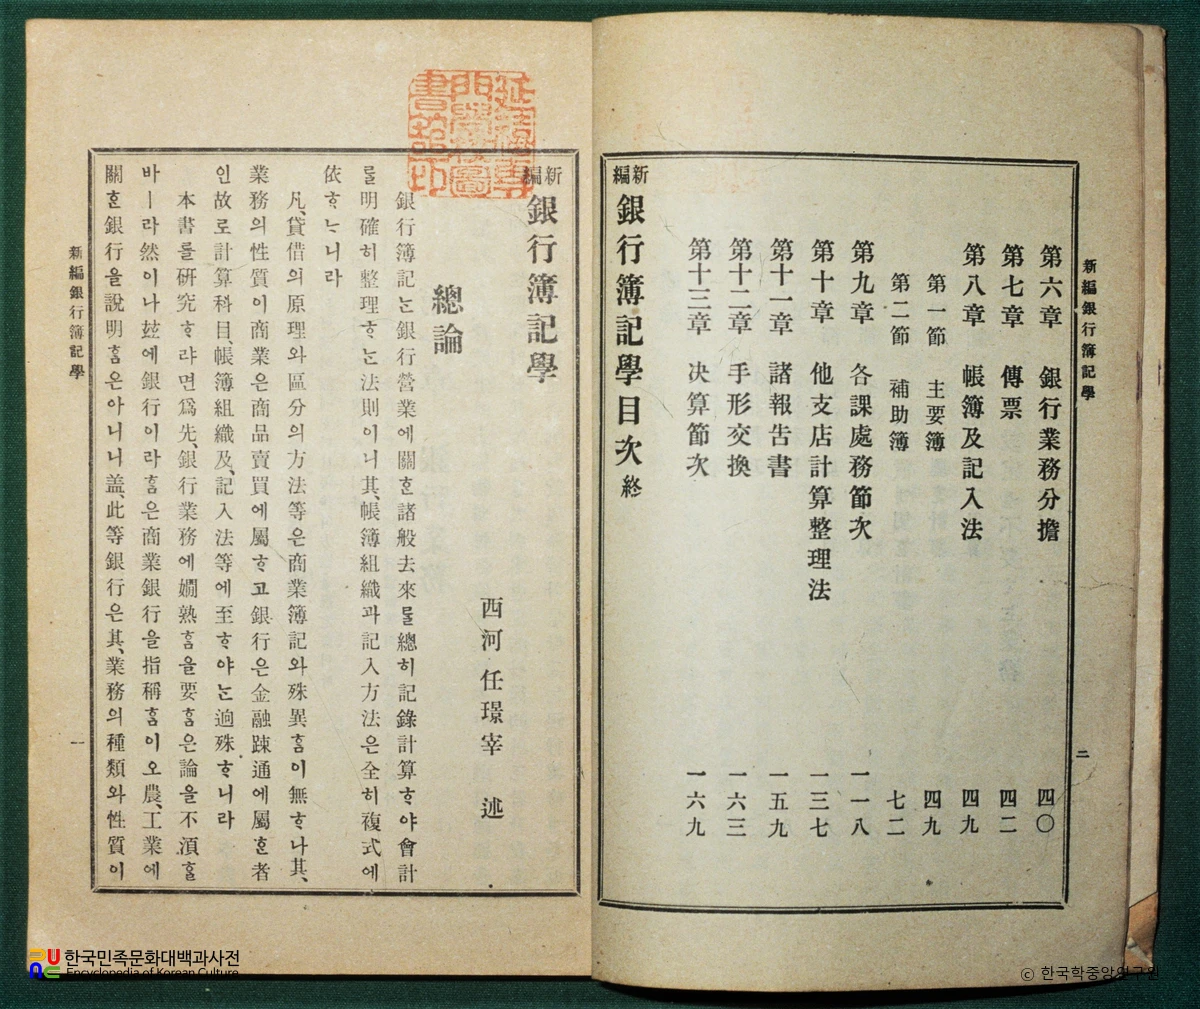 新編銀行簿記學
二
第六章 銀行業務分擔 四〇
第七章 傳票 四二
第八章 帳簿及記入法 四九
第一節 主要簿 四九
第二節 補助簿 七二
第九章 各課處務節次 一一八
第十章 他支店計算整理法 一三七
第十一章 諸報告書 一五九
第十二章 手形交換 一六三
第十三章 决算節次 一六九
新編 銀行簿記學目次 終
新編 銀行簿記學
西河 任璟宰 述
總論
銀行簿記ᄂᆞᆫ銀行營業에關ᄒᆞᆫ諸般去來ᄅᆞᆯ總히記錄計算ᄒᆞ야會計
ᄅᆞᆯ明確히整理ᄒᆞᄂᆞᆫ法則이니其、帳簿組織과記入方法은全히複式에
依ᄒᆞᄂᆞ니라
凡、貸借의原理와區分의方法等은商業簿記와殊異ᄒᆞᆷ이無ᄒᆞ나其、
業務의性質이商業은商品賣買에屬ᄒᆞ고銀行은金融踈通에屬ᄒᆞᆫ者
인故로計算科目、帳簿組織及、記入法等에至ᄒᆞ야ᄂᆞᆫ逈殊ᄒᆞ니라
本書를硏究ᄒᆞ랴면爲先、銀行業務에嫺熟ᄒᆞᆷ을要ᄒᆞᆷ은論을不湏ᄒᆞᆯ
바ㅣ라然이나玆에銀行이라ᄒᆞᆷ은商業銀行을指稱ᄒᆞᆷ이오農、工業에
關ᄒᆞᆫ銀行을說明ᄒᆞᆷ은아니니盖、此等銀行은其、業務의種類와性質이
新編銀行簿記學
一
延禧專
門學校圖
書舘印
한국민족문화대백과사전
Encyclopedia of Korean Culture
© 한국학중앙연구원